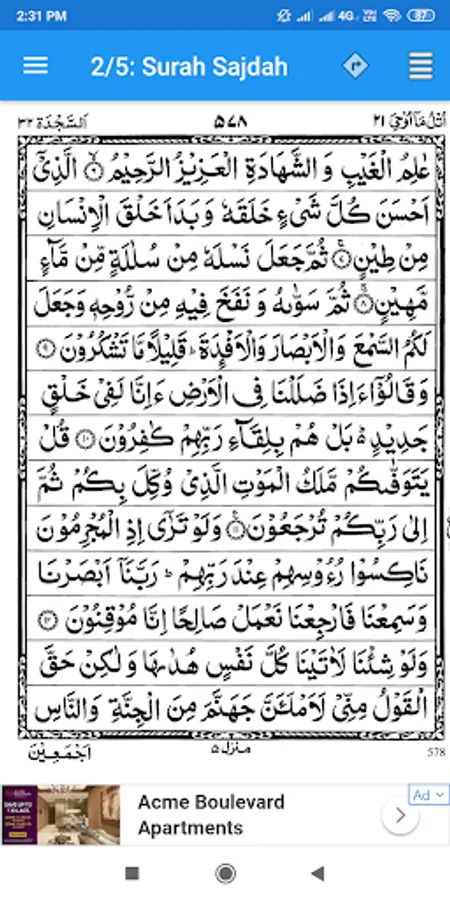 2:31 PM
4G VoI LTE 87
2/5: Surah Sajdah
اَلسَّجْدَة ٣٢ ٥٧٨ اُتْلُ مَآ اُوْحِيَ ٢١
عٰلِمُ الْغَيْبِ وَ الشَّهَادَةِ الْعَزِيْزُ الرَّحِيْمُ ۝٦ الَّذِيْٓ
اَحْسَنَ كُلَّ شَيْءٍ خَلَقَهٗ وَ بَدَاَ خَلْقَ الْاِنْسَانِ
مِنْ طِيْنٍ ۝٧ ثُمَّ جَعَلَ نَسْلَهٗ مِنْ سُلٰلَةٍ مِّنْ مَّآءٍ
مَّهِيْنٍ ۝٨ ثُمَّ سَوّٰىهُ وَ نَفَخَ فِيْهِ مِنْ رُّوْحِهٖ وَجَعَلَ
لَكُمُ السَّمْعَ وَ الْاَبْصَارَ وَالْاَفْـِٕدَةَ ؕ قَلِيْلًا مَّا تَشْكُرُوْنَ ۝٩
وَ قَالُوْٓا ءَاِذَا ضَلَلْنَا فِي الْاَرْضِ ءَاِنَّا لَفِيْ خَلْقٍ
جَدِيْدٍ ؕ۬ بَلْ هُمْ بِلِقَآءِ رَبِّهِمْ كٰفِرُوْنَ ۝١٠ قُلْ
يَتَوَفّٰىكُمْ مَّلَكُ الْمَوْتِ الَّذِيْ وُكِّلَ بِكُمْ ثُمَّ
اِلٰى رَبِّكُمْ تُرْجَعُوْنَ ۝١١ وَلَوْ تَرٰٓى اِذِ الْمُجْرِمُوْنَ
نَاكِسُوْا رُءُوْسِهِمْ عِنْدَ رَبِّهِمْ ؕ رَبَّنَآ اَبْصَرْنَا
وَسَمِعْنَا فَارْجِعْنَا نَعْمَلْ صَالِحًا اِنَّا مُوْقِنُوْنَ ۝١٢
وَلَوْ شِئْنَا لَاٰتَيْنَا كُلَّ نَفْسٍ هُدٰىهَا وَ لٰكِنْ حَقَّ
الْقَوْلُ مِنِّيْ لَاَمْلَـَٔنَّ جَهَنَّمَ مِنَ الْجِنَّةِ وَالنَّاسِ
اَجْمَعِيْنَ منزل ٥ 578
Ad
Acme Boulevard
Apartments